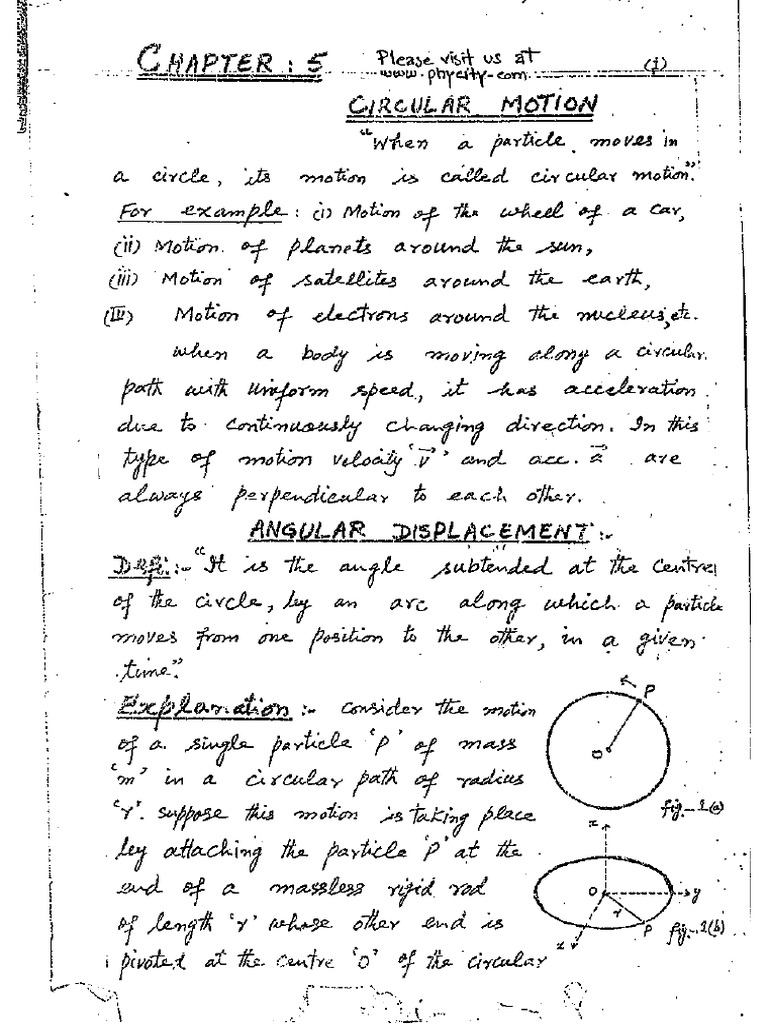 CHAPTER : 5
Please visit us at
www.phycity.com
(1)
CIRCULAR MOTION
"When a particle moves in
a circle, its motion is called circular motion."
For example : (i) Motion of the wheel of a car,
(ii) Motion of planets around the sun,
(iii) Motion of satellites around the earth,
(IV) Motion of electrons around the nucleus, etc.
When a body is moving along a circular
path with uniform speed, it has acceleration
due to continuously changing direction. In this
type of motion velocity 'v⃗' and acc. a⃗ are
always perpendicular to each other.
ANGULAR DISPLACEMENT :-
Def :- "It is the angle subtended at the centre
of the circle, by an arc along which a particle
moves from one position to the other, in a given
time".
Explanation :- consider the motion
of a single particle 'P' of mass
'm' in a circular path of radius
'r'. suppose this motion is taking place
by attaching the particle 'P' at the
end of a massless rigid rod
of length 'r' whose other end is
pivoted at the centre 'O' of the circular
P
O
fig.-1(a)
z
O
y
r
P
x
fig.-1(b)